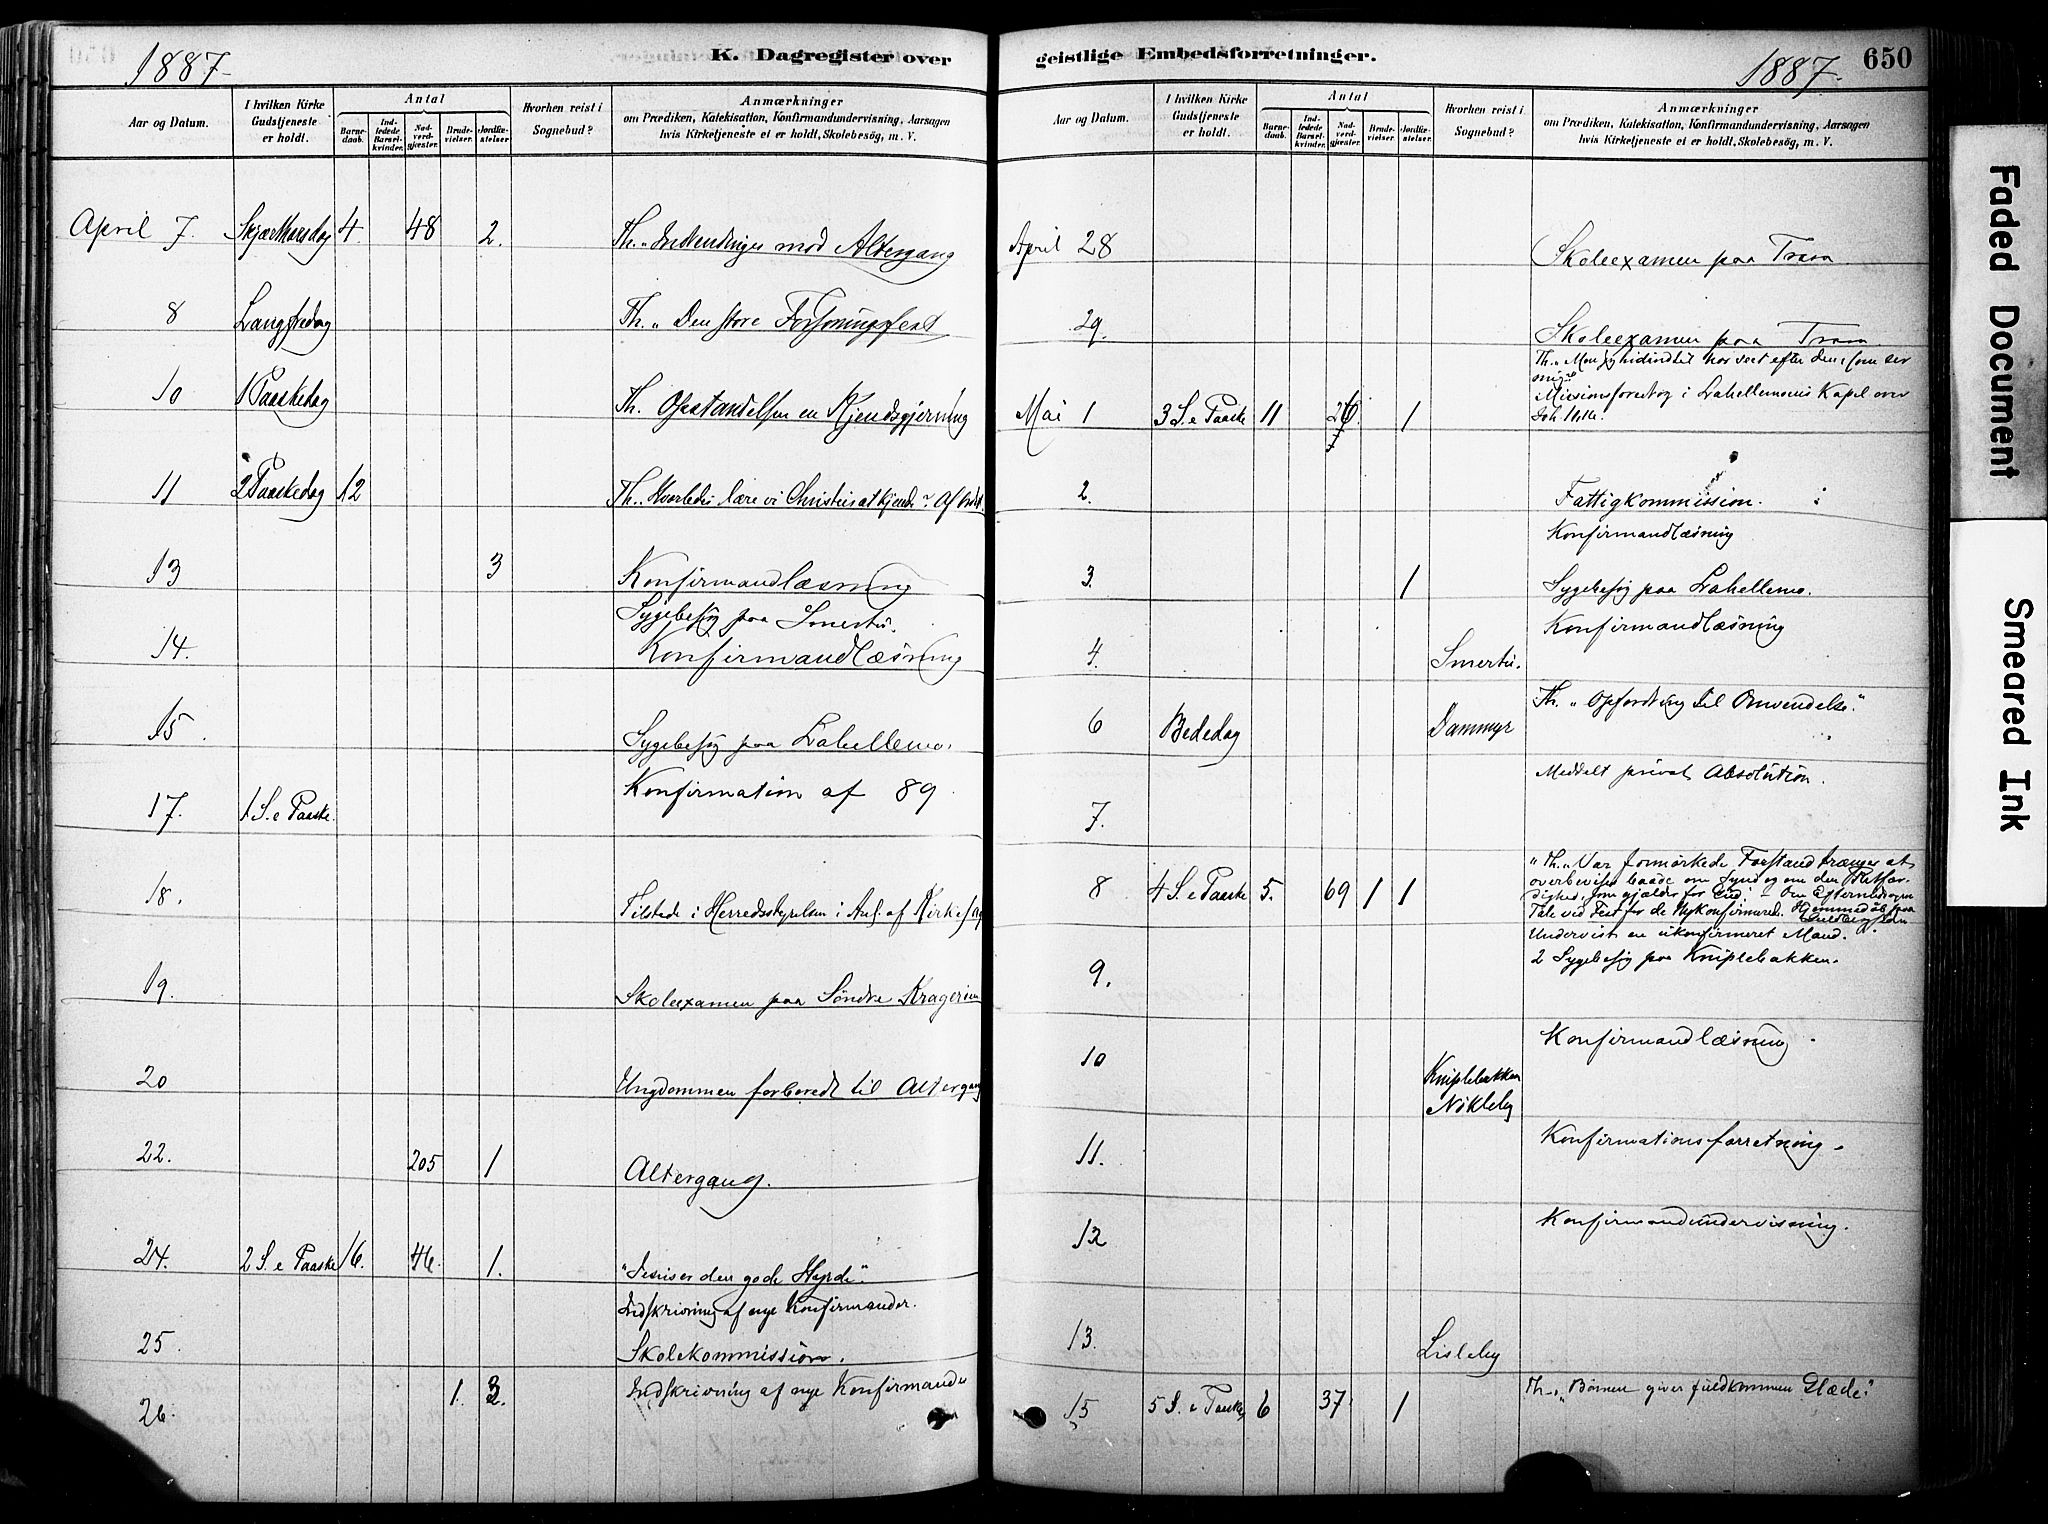 1887.
K. Dagregister over
Aar og Datum.
I hvilken Kirke Gudstjeneste er holdt.
Antal
Barnedaab.
Indledede Barselkvinder.
Nadverdgjæster.
Brudevielser.
Jordfæstelser
Hvorhen reist i Sognebud?
Anmærkninger
om Prædiken, Katekisation, Konfirmandundervisning, Aarsagen
hvis Kirketjeneste ei er holdt, Skolebesøg, m. V.
April 7. Skjærthorsdag 4. 48 2. Th. " Indvendinger mod Altergang
8 Langfredag Th. " Den store Forsoningsfest
10 1 Paaskedag Th. Opstandelsen en Kjendsgjerning
11 2 Paaskedag 12 Th. " Hvorledes lære vi Christus at kjende?
13 3 Konfirmandlæsning
Sygebesøg paa Smertu.
14. Konfirmandlæsning
15 Sygebesøg paa Lahellemo.
Konfirmation af 89
17. 1 S. e Paaske.
18. Tilstede i Herredsstyrelsen i Anl. af Kirkesag
19. Skoleexamen paa Söndre Kragerøen
20 Ungdommen forberedt til Altergang
22. 205 1 Altergang.
24. 2 S. e Paaske 16. 46. 1. "Jesus er den gode Hyrde".
Indskrivning af nye Konfirmander.
25 Skolekommission.
26. 1. 3. Indskrivning af nye Konfirmander
geistlige Embedsforretninger.
1887.
650
Aar og Datum.
I hvilken Kirke Gudstjeneste er holdt.
Antal
Barnedaab.
Indledede Barselkvinder.
Nadverdgjæster.
Brudevielser.
Jordfæstelser.
Hvorhen reist i Sognebud?
Anmærkninger
om Prædiken, Katekisation, Konfirmandundervisning, Aarsagen
hvis Kirketjeneste ei er holdt, Skolebesøg, m. V.
April 28 Skoleexamen paa Trara
29. Skoleexamen paa Trara
Missionsforedrag i Lahellemoens Kapel over
Mai 1 3 S. e Paaske 11 26 1
2. Fattigkommission.
Konfirmandlæsning
3. 1 Sygebesøg paa Lahellemo.
Konfirmandlæsning
4. Smertu.
6 Bededag Dammyr Th. " Opfordring til Omvendelse."
Meddelt privat Absolution.
7.
8 4 S. e Paaske 5. 69 1 1 "Th. " Vor formörkede Forstand trænger at
overbevises baade om Synd og om den Retfær-
dighed, som gjælder for Gud - Om Eftermiddagen
Tale ved Fest for de Nykonfirmered. Hjemmedåb paa
Undervist en ukonfirmeret Mand.
2 Sygebesøg paa Kniplebakken.
9.
10 Kniplebakken Nökleby Konfirmandlæsning.
11. Konfirmationsforretning.
12 Konfirmandundervisning.
13. Lisleby
15 5 S. e Paaske 6 37 1 Th. " Bönnen giver fuldkommen Glæde."
Faded Document
Smeared Ink